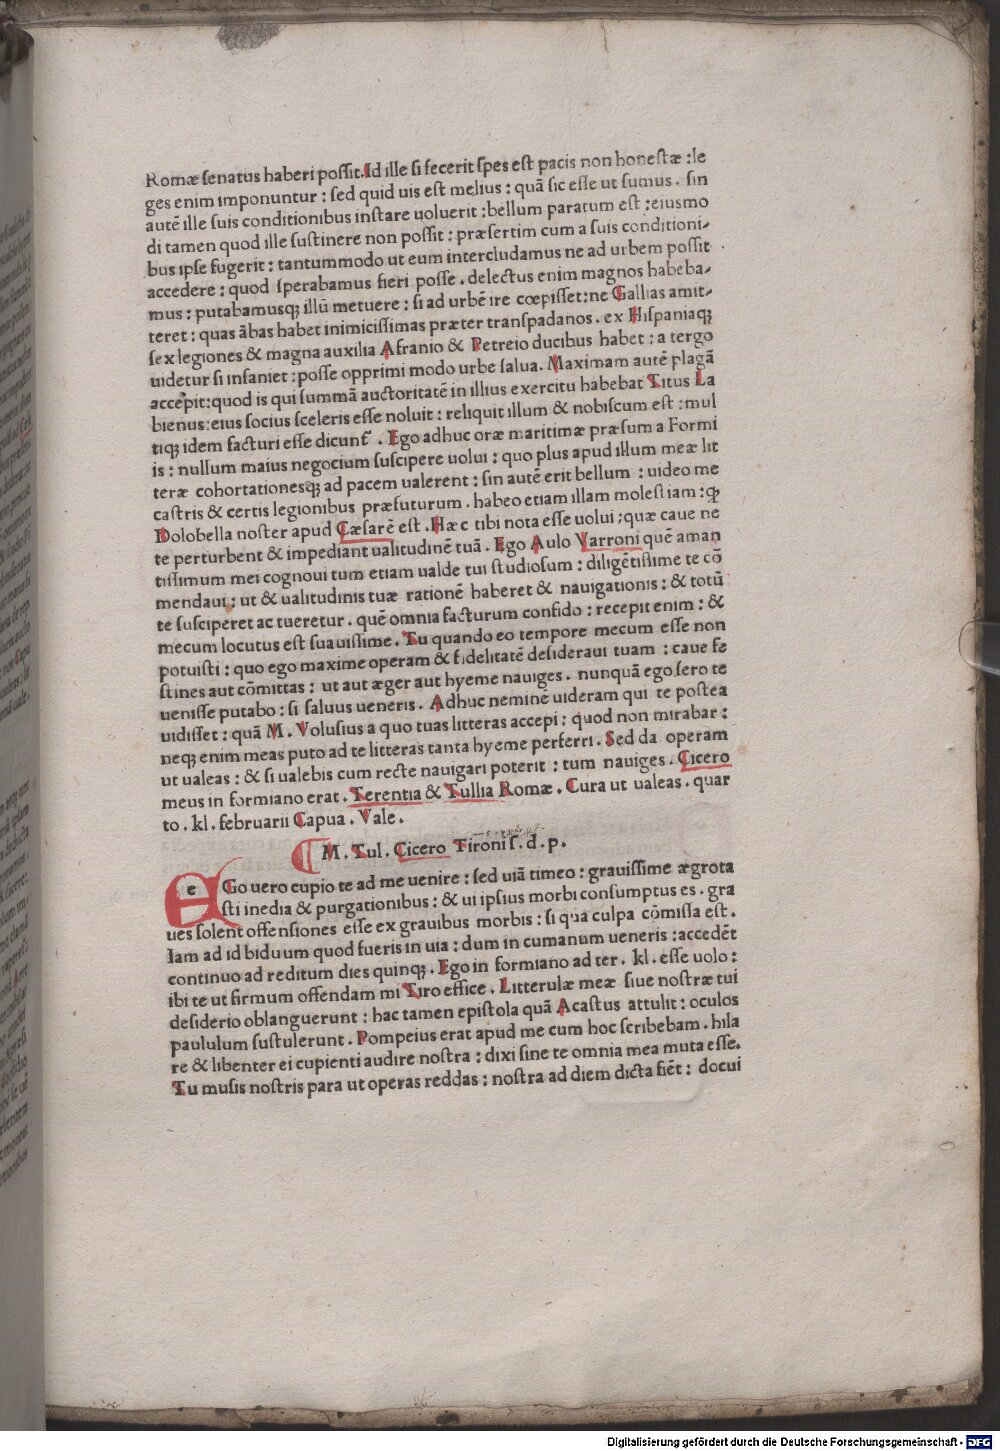 Romæ ſenatus haberi poſſit. Id ille ſi fecerit ſpes eſt pacis non honeſtæ : le
ges enim imponuntur : ſed quid uis eſt melius : quã ſic eſſe ut ſumus . ſin
autẽ ille ſuis conditionibus inſtare uoluerit : bellum paratum eſt : eiusmo
di tamen quod ille ſuſtinere non poſſit : præſertim cum a ſuis conditioni-
bus ipſe fugerit : tantummodo ut eum intercludamus ne ad urbem poſſit
accedere : quod ſperabamus fieri poſſe . delectus enim magnos habeba-
mus : putabamusqꝫ illũ metuere : ſi ad urbẽ ire cœpiſſet : ne Gallias amit-
teret : quas ãbas habet inimiciſſimas præter tranſpadanos . ex Hiſpaniaqꝫ
ſex legiones & magna auxilia Afranio & Petreio ducibus habet : a tergo
uidetur ſi inſaniet : poſſe opprimi modo urbe ſalua . Maximam autẽ plagã
accepit : quod is qui ſummã auctoritatẽ in illius exercitu habebat Titus La
bienus : eius ſocius ſceleris eſſe noluit : reliquit illum & nobiſcum eſt : mul
tiqꝫ idem facturi eſſe dicunt᷑ . Ego adhuc oræ maritimæ præſum a Formi
is : nullum maius negocium ſuſcipere uolui : quo plus apud illum meæ lit
teræ cohortationesqꝫ ad pacem ualerent : ſin autẽ erit bellum : uideo me
caſtris & certis legionibus præfuturum . habeo etiam illam moleſtiam : ꝙ
Dolobella noſter apud Cæſarẽ eſt . Hæc tibi nota eſſe uolui ; quæ caue ne
te perturbent & impediant ualitudinẽ tuã . Ego Aulo Varroni quẽ aman
tiſſimum mei cognoui tum etiam ualde tui ſtudioſum : diligẽtiſſime te cõ
mendaui : ut & ualitudinis tuæ rationẽ haberet & nauigationis : & totũ
te ſuſciperet ac tueretur . quẽ omnia facturum confido : recepit enim : &
mecum locutus eſt ſuauiſſime . Tu quando eo tempore mecum eſſe non
potuiſti : quo ego maxime operam & fidelitatẽ deſideraui tuam : caue fe
ſtines aut cõmittas : ut aut æger aut hyeme nauiges . nunquã ego ſero te
ueniſſe putabo : ſi ſaluus ueneris . Adhuc neminẽ uideram qui te poſtea
uidiſſet : quã M . Voluſius a quo tuas litteras accepi : quod non mirabar :
neqꝫ enim meas puto ad te litteras tanta hyeme perferri . Sed da operam
ut ualeas : & ſi ualebis cum recte nauigari poterit : tum nauiges . Cicero
meus in formiano erat . Terentia & Tullia Romæ . Cura ut ualeas . quar
to . kl . februarii Capua . Vale .
M . Tul . Cicero Tironi ſ . d . p .
eGo uero cupio te ad me uenire : ſed uiã timeo : grauiſſime ægrota
ſti inedia & purgationibus : & ui ipſius morbi conſumptus es . gra
ues ſolent offenſiones eſſe ex grauibus morbis : ſi qua culpa cõmiſſa eſt .
Iam ad id biduum quod fueris in uia : dum in cumanum ueneris : accedẽt
continuo ad reditum dies quinqꝫ . Ego in formiano ad ter . kl . eſſe uolo :
ibi te ut firmum offendam mi Tiro effice . Litterulæ meæ ſiue noſtræ tui
deſiderio oblanguerunt : hac tamen epiſtola quã Acaſtus attulit : oculos
paululum ſuſtulerunt . Pompeius erat apud me cum hoc ſcribebam . hila
re & libenter ei cupienti audire noſtra : dixi ſine te omnia mea muta eſſe .
Tu muſis noſtris para ut operas reddas : noſtra ad diem dicta fiẽt : docui
Digitalisierung gefördert durch die Deutsche Forschungsgemeinschaft - DFG